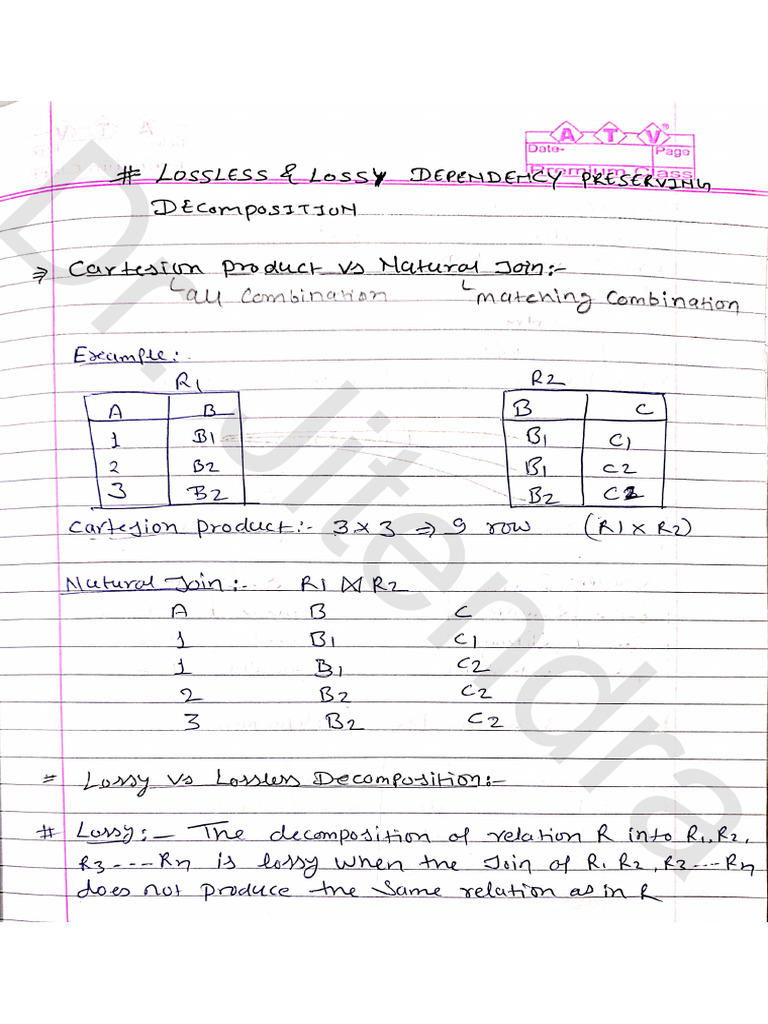 ATV
Date- Page
Premium Class
# LOSSLESS & LOSSY DEPENDENCY PRESERVING
DECOMPOSITION
⇒ Cartesion product vs Natural Join:-
↳ all combination ↳ matching combination
Example:-
R1 R2
A B B C
1 B1 B1 C1
2 B2 B1 C2
3 B2 B2 C2
Cartesion product:- 3 x 3 ⇒ 9 row (R1 x R2)
Natural Join:- R1 ⋈ R2
A B C
1 B1 C1
1 B1 C2
2 B2 C2
3 B2 C2
= Lossy vs Lossless Decomposition:-
# Lossy:- The decomposition of relation R into R1, R2,
R3----Rn is lossy when the Join of R1 R2, R3---Rn
does not produce the same relation as in R
Dr. Jitendra